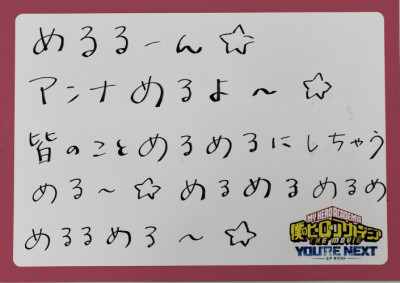 めるるーん☆
アンナめるよ～☆
皆のことめろめろにしちゃう
める～☆めるめるめるめ
めるるめろ～☆
MY HERO ACADEMIA
僕のヒーローアカデミア
THE MOVIE
YOU'RE NEXT
ユア ネクスト